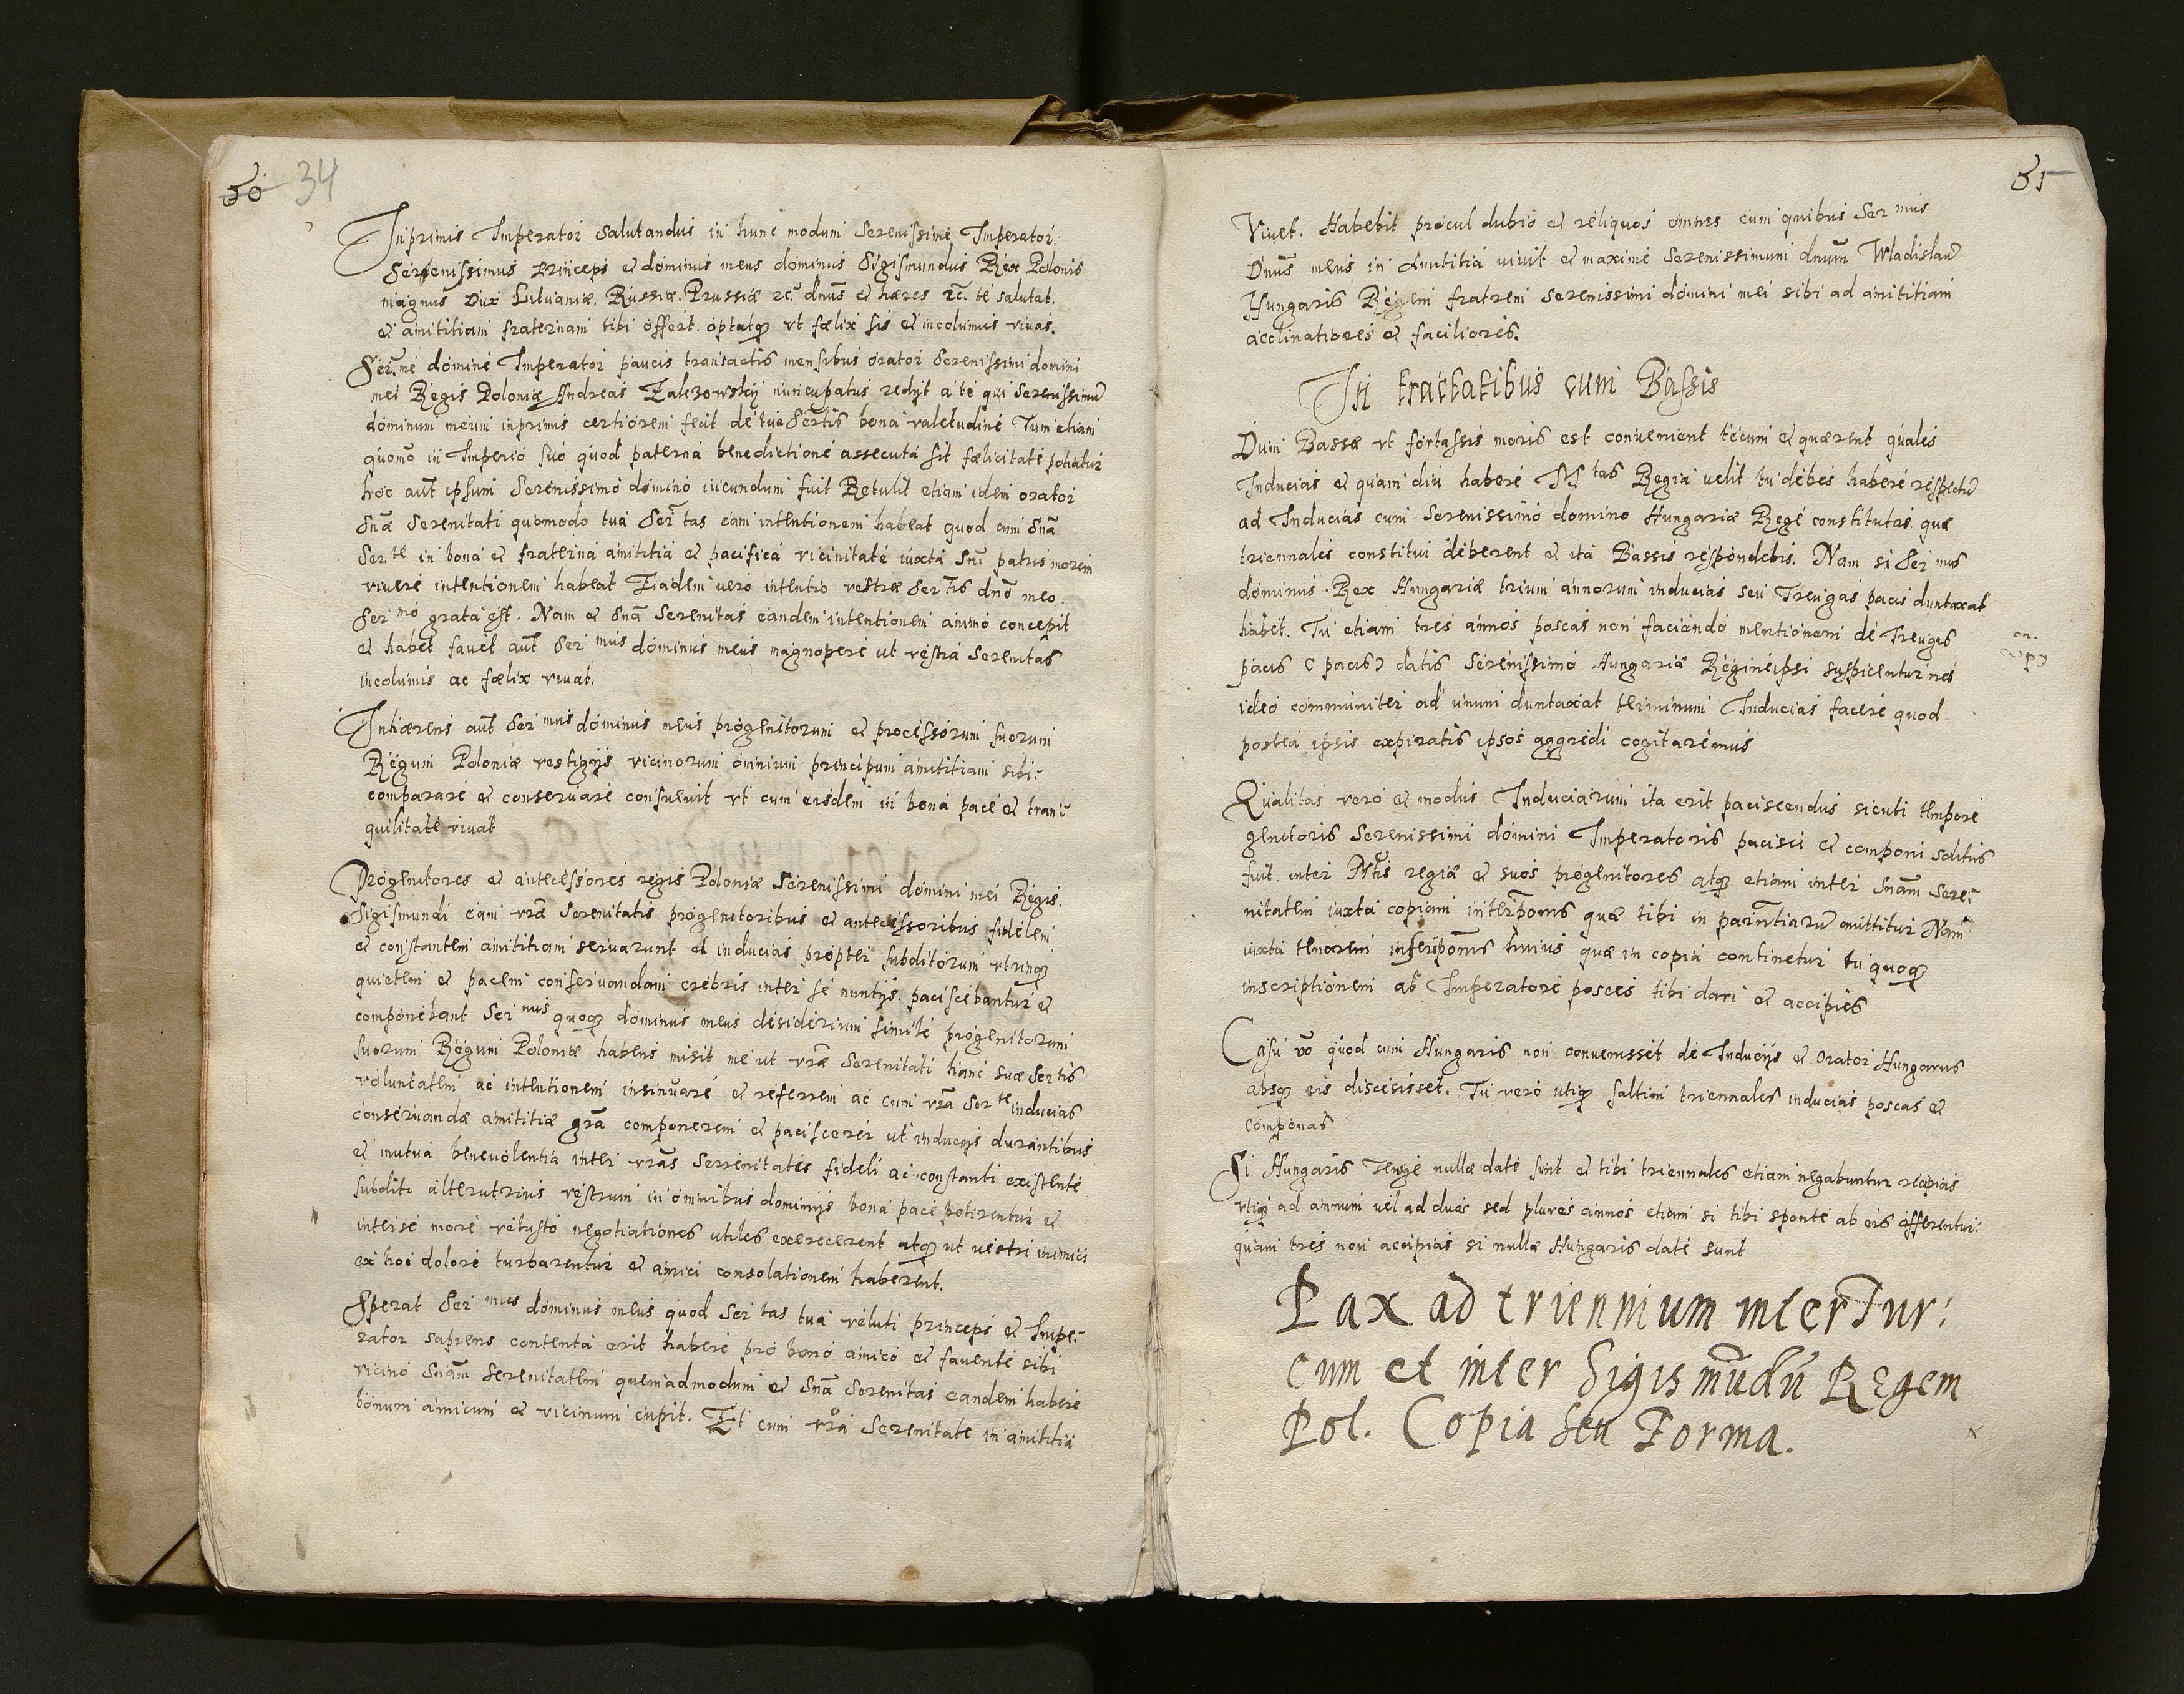 50 34
Inprimis Imperator salutandus in hunc modum Serenissime Imperator.
Serenissimus princeps et dominus meus dominus Sigismundus Rex Polonię
magnus Dux Lituaniæ. Russiæ. Prussiæ zc. dnus et hæres zc. te salutat.
et amititiam fraternam tibi offert. optatq vt fœlix sis et incolumis vivas.
Ser.me domine Imperator paucis transactis mensibus orator Serenissimi domini
mei Regis Poloniæ Andreas Zakrzowskij nuncupatus redijt a te qui Serenissimū
dominum meum inprimis certiorem fecit de tuæ Sertis bona valetudine Tum etiam
quomō in Imperio suo quod paterna benedictione assecuta sit fœlicitate potiatur
hoc aut ipsum Serenissimo domino iucundum fuit Retulit etiam idem orator
Snæ Serenitati quomodo tua Sertas eam intentionem habeat quod cum Snā
Ser.te in bona et fraterna amititia et pacifica vicinitate iuxta Sni patris morem
vivere intentionem habeat Eadem vero intentio vestræ Sertis dnō meo
Sermo grata est. Nam et Snā Serenitas eandem intentionem animo concepit
et habet favet aut Ser mus dominus meus magnopere ut vestra Serenitas
incolumis ac fœlix vivat.
Inhærens aut Ser mus dominus meus progenitorum et processorum suorum
Regum Poloniæ vestigijs vicinorum omnium principum amititiam sibi
comparare et conservare consuevit vt cum eisdem in bona pace et tran-
quilitate vivat
Progenitores et antecessores regis Poloniæ Serenissimi domini mei Regis.
Sigismundi cum vræ Serenitatis progenitoribus et antecessoribus fidelem
et constantem amititiam servarunt et inducias propter subditorum vtrinq
quietem et pacem conservandam crebris inter se nuntijs paciscebantur et
componebant Ser mus quoq dominus meus desiderium simile progenitorum
suorum Regum Poloniæ habens misit me ut vræ Serenitati hanc suæ Sertis
voluntatem ac intentionem insinuare et referrem ac cum vrā Ser te inducias
conservandæ amititiæ grā componerem et pacisceret ut inducijs durantibus
et mutua benevolentia inter vrās Serrenitates fideli ac constanti existente
subditi alterutrius vestrum in omnibus dominijs bona pace potirentur et
inter se more vetusto negotiationes utiles exercerent atq ut vestri inimici
ex hoc dolore turbarentur et amici consolationem haberent.
Sperat Ser mus dominus meus quod Ser tas tua veluti princeps et Impe-
rator sapiens contenta erit habere pro bono amico et favente sibi
vicino Snām Serenitatem quemadmodum et Snā Serenitas eandem habere
bonum amicum et vicinum cupit. Et cum vrā Serenitate in amititia
51
Vivet. Habebit procul dubio et reliquos omnes cum quibus Ser mus
Dnus meus in Amititia vivit et maxime Serenissimum dnum Wladislaū
Hungarię Regem fratrem Serenissimi domini mei sibi ad amititiam
acclinatiores et faciliores.
In tractatibus cum Bassis
Dum Bassæ vt fortassis moris est convenient tecum et quærent quales
Inducias et quam diu habere M tas Regia velit tu debes habere respectū
ad Inducias cum Serenissimo domino Hungariæ Rege constitutas quæ
triennales constitui deberent et ita Bassis respondebis. Nam si Ser mus
dominus Rex Hungariæ trium annorum inducias seu Treugas pacis duntaxat
habet. Tu etiam tres annos poscas non faciendo mentionem de Treugis
pacis (pacis) datis Serenissimo Hungariæ Regi ne ipsi suspicentur nos
ideo communiter ad unum duntaxat terminum Inducias facere quod
postea ipsis expiratis ipsos aggredi cogitaremus
Qualitas vero et modus Induciarum ita erit paciscendus sicuti tempore
genitoris Serenissimi domini Imperatoris pacisci et componi solitus
fuit inter Mtis regiæ et suos progenitores atq etiam inter Snām Sere-
nitatem iuxta copiam quæ tibi in mittitur Nam
iuxta tenorem huius quæ in copia continetur tu quoq
inscriptionem ab Imperatore posces tibi dari et accipies
Casu vō quod cum Hungaris non convenisset de Inducijs et Orator Hungarus
absq eis discesisset. Tu vero utiq saltim triennales inducias poscas et
componas
Si Hungaris Treuge nullæ date sunt et tibi triennales etiam negabuntur recipias
vtiq ad annum vel ad duos sed plures annos etiam si tibi sponte ab eis offerentur
quam tres non accipias si nullæ Hungaris date sunt
Pax ad triennium inter Tur:
cum et inter Sigismūdū Regem
Pol. Copia seu Forma.